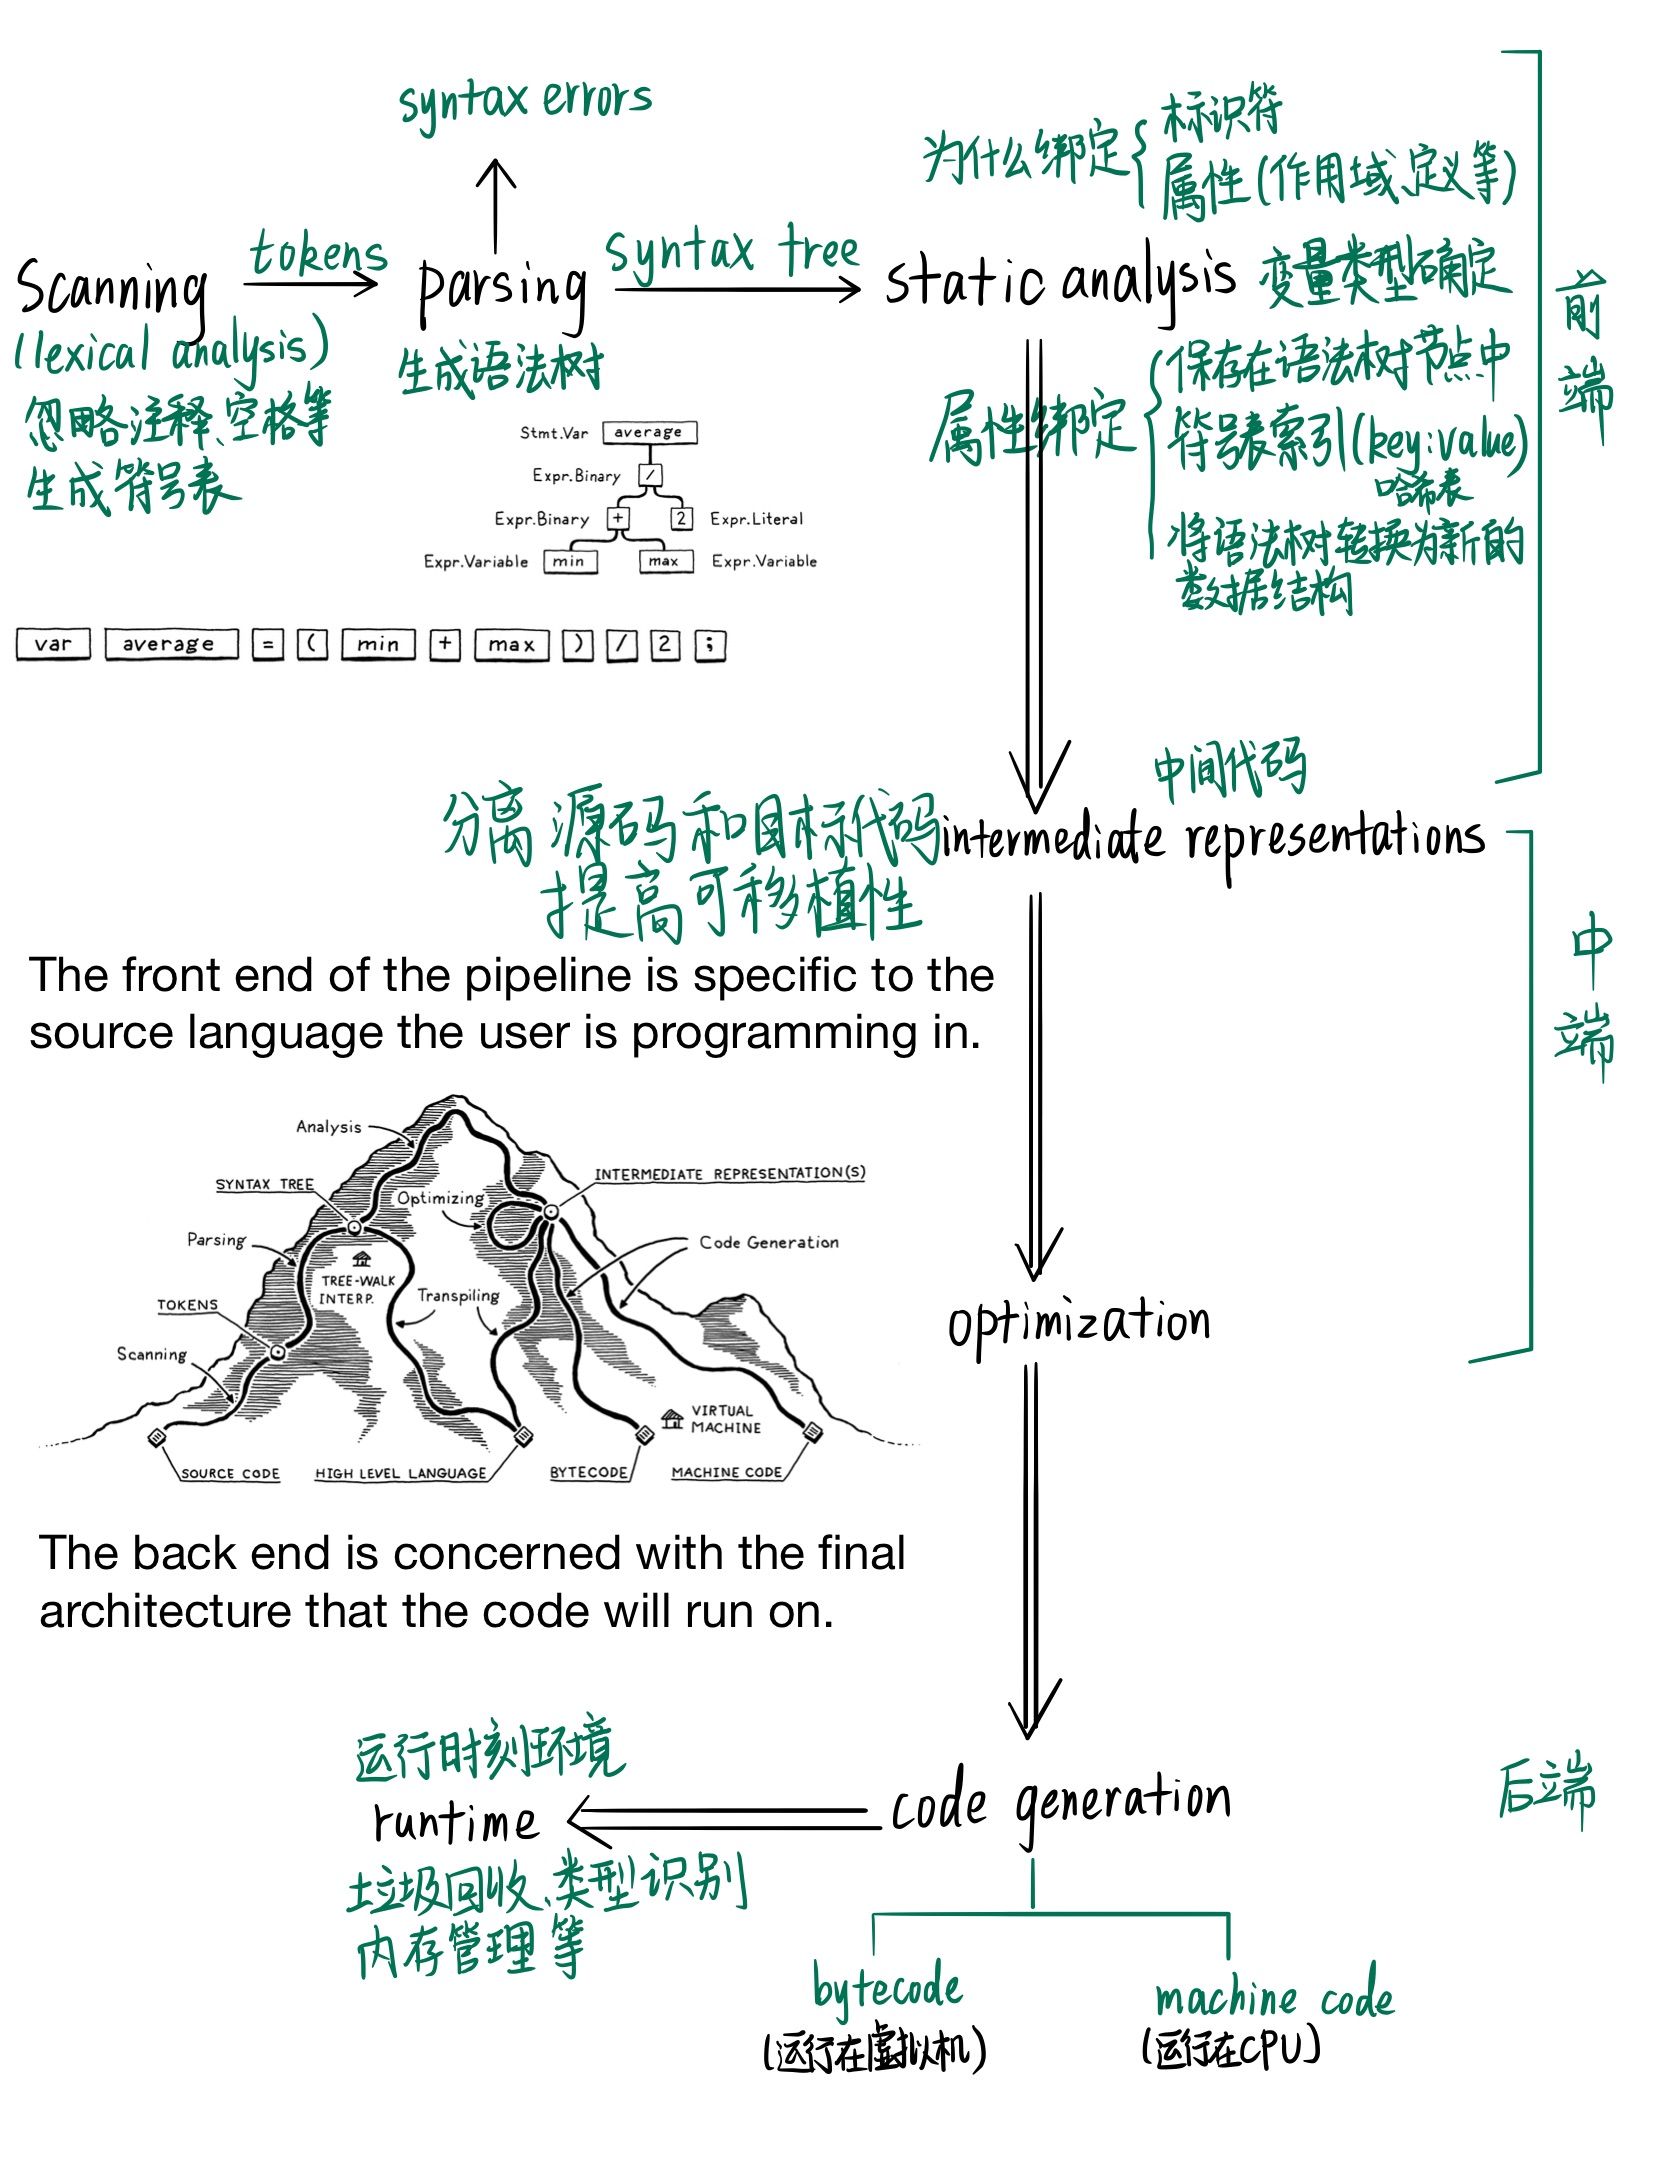 syntax errors
为什么绑定
标识符
属性(作用域、定义等)
Scanning
tokens
parsing
syntax tree
static analysis
变量类型确定
前端
(lexical analysis)
忽略注释、空格等
生成符号表
生成语法树
属性绑定
保存在语法树节点中
符号表索引(key:value)
哈希表
将语法树转换为新的
数据结构
Stmt.Var average
Expr.Binary /
Expr.Binary + 2 Expr.Literal
Expr.Variable min max Expr.Variable
var average = ( min + max ) / 2 ;
中间代码
分离源码和目标代码
intermediate representations
提高可移植性
中端
The front end of the pipeline is specific to the
source language the user is programming in.
Analysis
SYNTAX TREE
Optimizing
INTERMEDIATE REPRESENTATION(S)
Parsing
Code Generation
TREE-WALK
INTERP.
Transpiling
TOKENS
Scanning
VIRTUAL
MACHINE
SOURCE CODE
HIGH LEVEL LANGUAGE
BYTECODE
MACHINE CODE
optimization
The back end is concerned with the final
architecture that the code will run on.
运行时刻环境
runtime
code generation
后端
垃圾回收、类型识别
内存管理等
bytecode
(运行在虚拟机)
machine code
(运行在CPU)